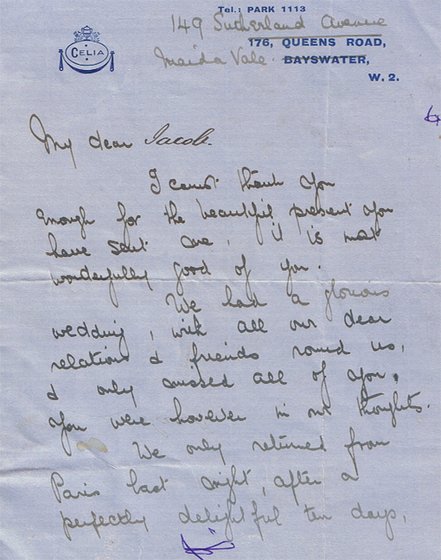 Tel.: PARK 1113
149 Sutherland Avenue
176, QUEENS ROAD,
Maida Vale. BAYSWATER,
W. 2.
CELIA
My dear Jacob.
I cannot thank you
enough for the beautiful present you
have sent me, it is most
wonderfully good of you.
We had a glorious
wedding, with all our dear
relations & friends round us,
& only missed all of you.
You were however in our thoughts.
We only returned from
Paris last night, after a
perfectly delightful ten days,